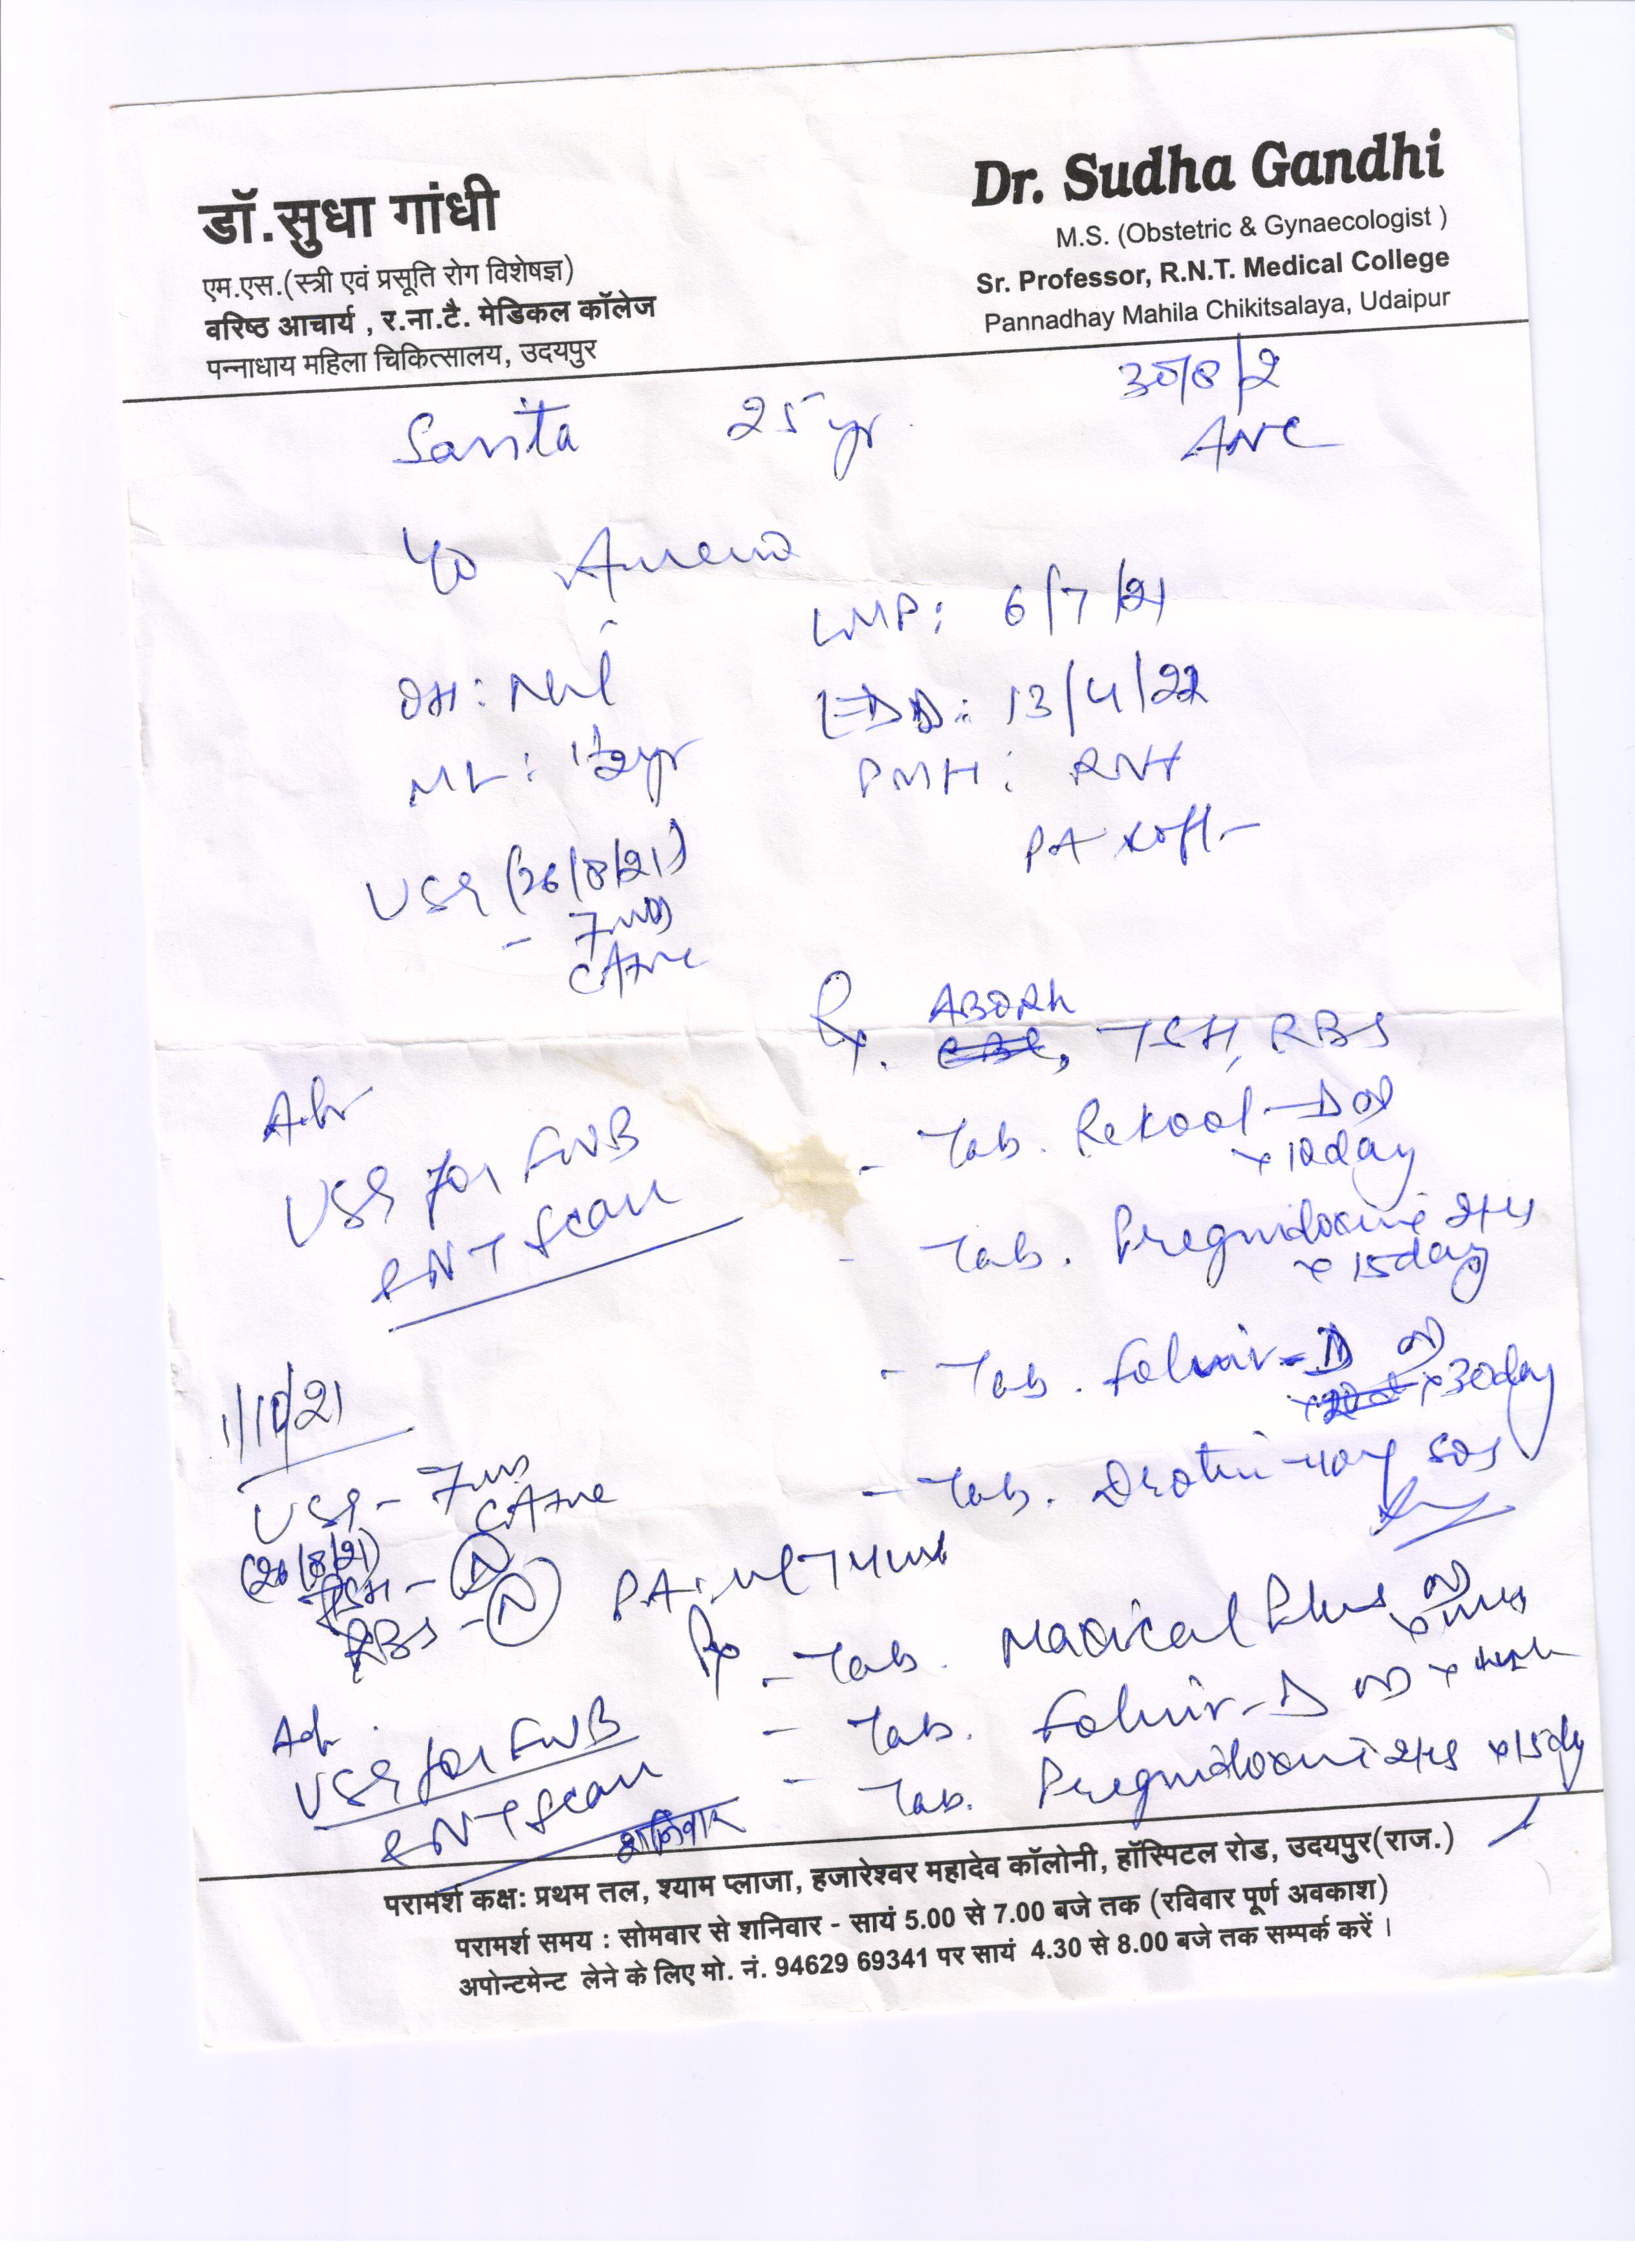 डॉ.सुधा गांधी
एम.एस.(स्त्री एवं प्रसूति रोग विशेषज्ञ)
वरिष्ठ आचार्य , र.ना.टै. मेडिकल कॉलेज
पन्नाधाय महिला चिकित्सालय, उदयपुर
Dr. Sudha Gandhi
M.S. (Obstetric & Gynaecologist )
Sr. Professor, R.N.T. Medical College
Pannadhay Mahila Chikitsalaya, Udaipur
30/8/2
Sarita 25 yr.
ANC
LMP: 6/7/21
OH: Nil
EDD: 13/4/22
ML: 1½yr
PMH:
PA soft
USG (26/8/21)
- 7
Rx. ABORh
CBC, TSH, RBS
Adv
USG for FWB
& NT Scan
- Tab. Rekool-D OD
x 10day
- Tab. Pregnidoxine 2HS
x 15day
- Tab. Folinir-D OD
x 30day
- Tab. Drotin 40mg SOS
1/10/21
USG - 7
(26/8/21)
TSH - N
RBS - N
PA:
Rx
- Tab. Maxical Plus OD
- Tab. Folinir-D OD x
- Tab. Pregnidoxine 2HS x 15dy
Adv
USG for FWB
& NT Scan
शनिवार
परामर्श कक्ष: प्रथम तल, श्याम प्लाजा, हजारेश्वर महादेव कॉलोनी, हॉस्पिटल रोड, उदयपुर(राज.)
परामर्श समय : सोमवार से शनिवार - सायं 5.00 से 7.00 बजे तक (रविवार पूर्ण अवकाश)
अपोन्टमेन्ट लेने के लिए मो. नं. 94629 69341 पर सायं 4.30 से 8.00 बजे तक सम्पर्क करें ।